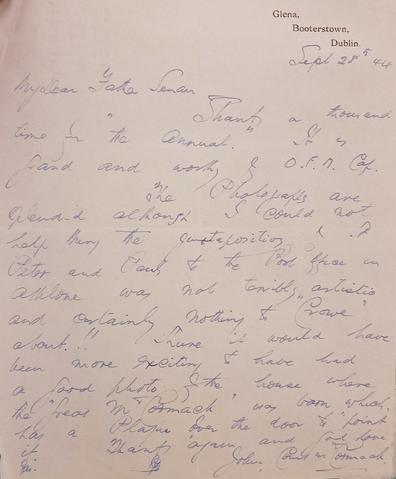 Glena,
Booterstown,
Dublin.
Sept 28th 44
My dear Father Senan
Thanks a thousand
times for the "Annual." It is
grand and worthy of O.F.M. Cap.
The Photographs are
splendid although I could not
help thing the juxtaposition of
Peter and Paul to the Post Office in
Athlone was not terribly "artistic"
and certainly nothing to "Crowe"
about.!! I it would have
been more exciting to have had
a good photo of the house where
the "great McCormack" was born which
has a Plaque over the door to "point"
it. Thanks again and God love
you. John, Count McCormack.